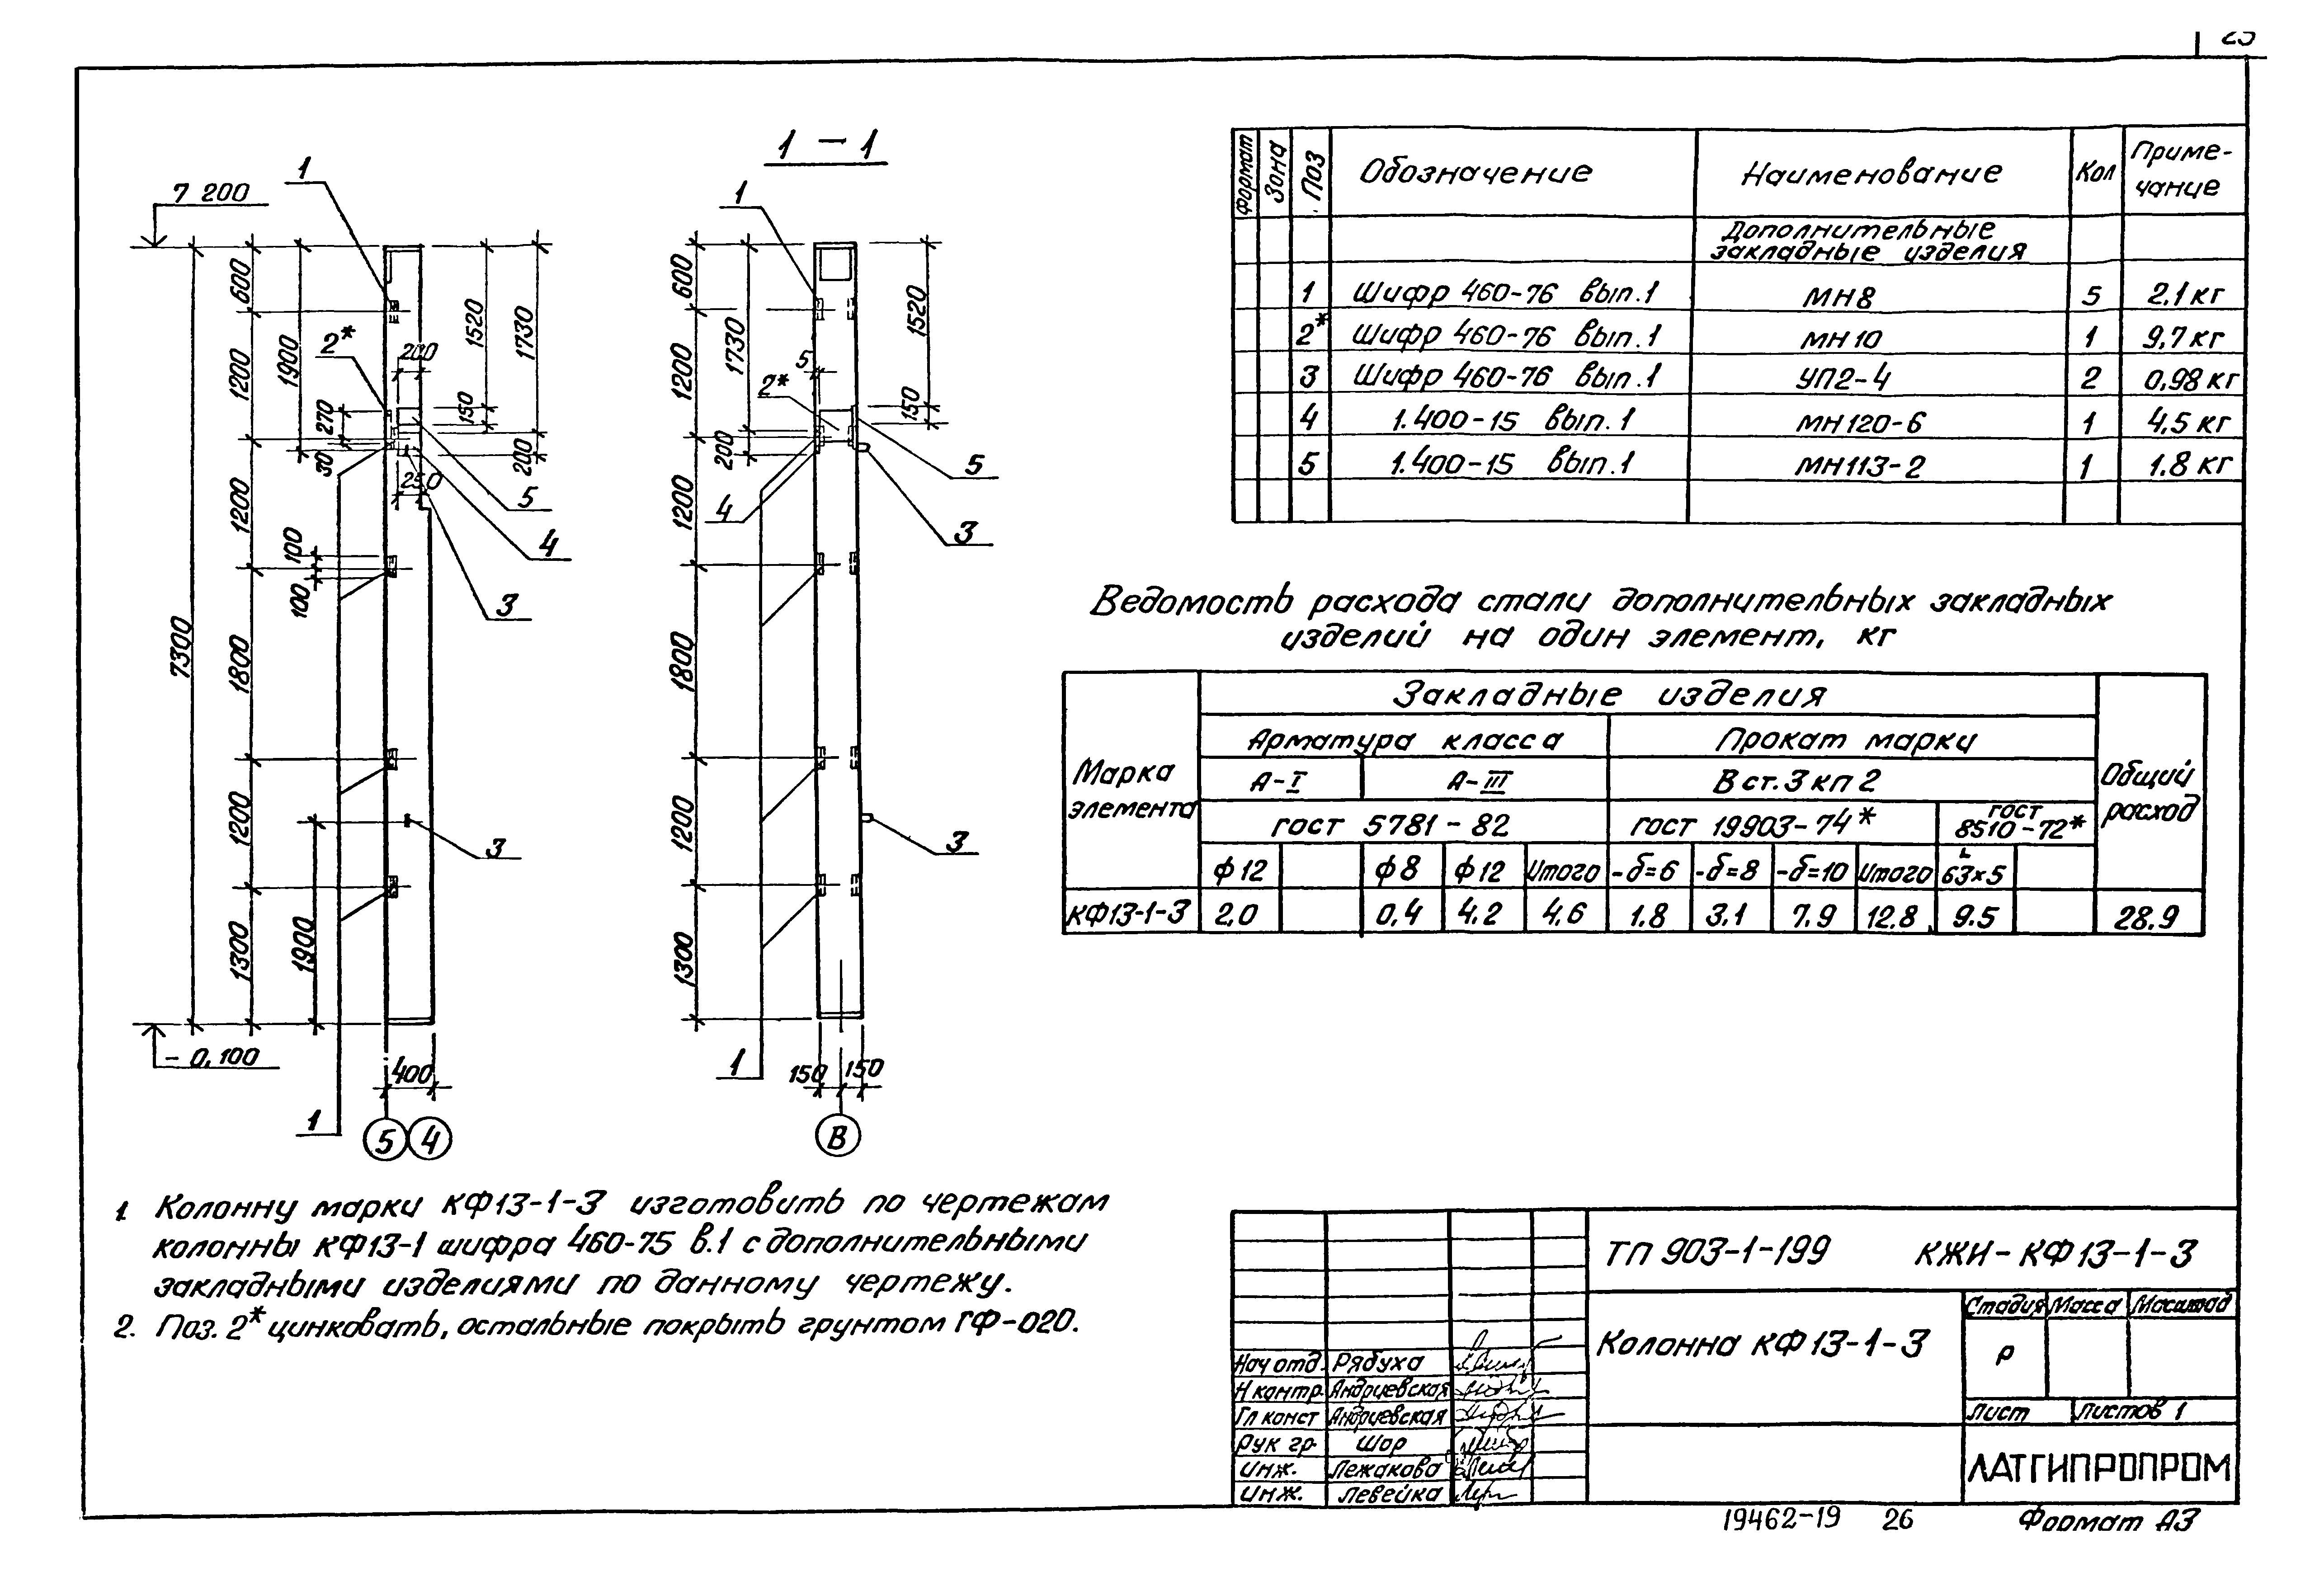 1 – 1
7 200
1
1
600
1200
1900
2*
200
1520
1730
270
150
30
200
250
1200
100
100
5
4
3
7300
1800
1200
3
1900
1300
– 0,100
400
1
5 4
600
1730
1200
5
2*
1520
150
200
5
4
3
1200
1800
1200
3
1300
1
150 150
В
Формат Зона Поз Обозначение Наименование Кол Приме-
чание
Дополнительные
закладные изделия
1 Шифр 460-76 вып.1 МН8 5 2,1 кг
2* Шифр 460-76 вып.1 МН10 1 9,7 кг
3 Шифр 460-76 вып.1 УП2-4 2 0,98 кг
4 1.400-15 вып.1 МН120-6 1 4,5 кг
5 1.400-15 вып.1 МН113-2 1 1.8 кг
Ведомость расхода стали дополнительных закладных
изделий на один элемент, кг
Марка
элемента
Закладные изделия
Общий
расход
Арматура класса Прокат марки
А-I А-III В ст.3 кп 2
гост 5781-82 гост 19903-74* гост
8510-72*
ф12 ф8 ф12 Итого -δ=6 -δ=8 -δ=10 Итого 63×5
КФ13-1-3 2,0 0,4 4.2 4,6 1.8 3,1 7.9 12.8 9.5 28.9
1 Колонну марки КФ13-1-3 изготовить по чертежам
колонны КФ13-1 шифра 460-75 в.1 с дополнительными
закладными изделиями по данному чертежу.
2. Поз. 2* цинковать, остальные покрыть грунтом ГФ-020.
ТП 903-1-199 КЖИ-КФ13-1-3
Колонна КФ13-1-3
Стадия Масса Масштаб
Р
Лист Листов 1
ЛАТГИПРОПРОМ
Нач отд. Рябуха
Н контр. Андриевская
Гл конст Андриевская
Рук гр. Шор
Инж. Лежакова
Инж. Левейка
19462-19 26 Формат А3